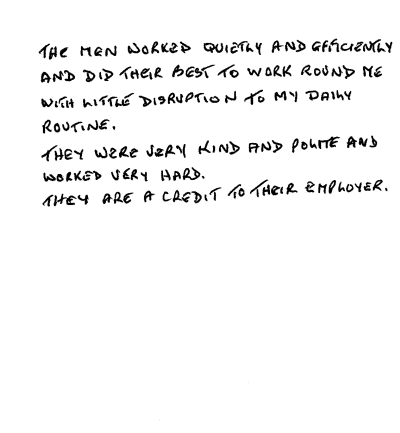 THE MEN WORKED QUIETLY AND EFFICIENTLY
AND DID THEIR BEST TO WORK ROUND ME
WITH LITTLE DISRUPTION TO MY DAILY
ROUTINE.
THEY WERE VERY KIND AND POLITE AND
WORKED VERY HARD.
THEY ARE A CREDIT TO THEIR EMPLOYER.